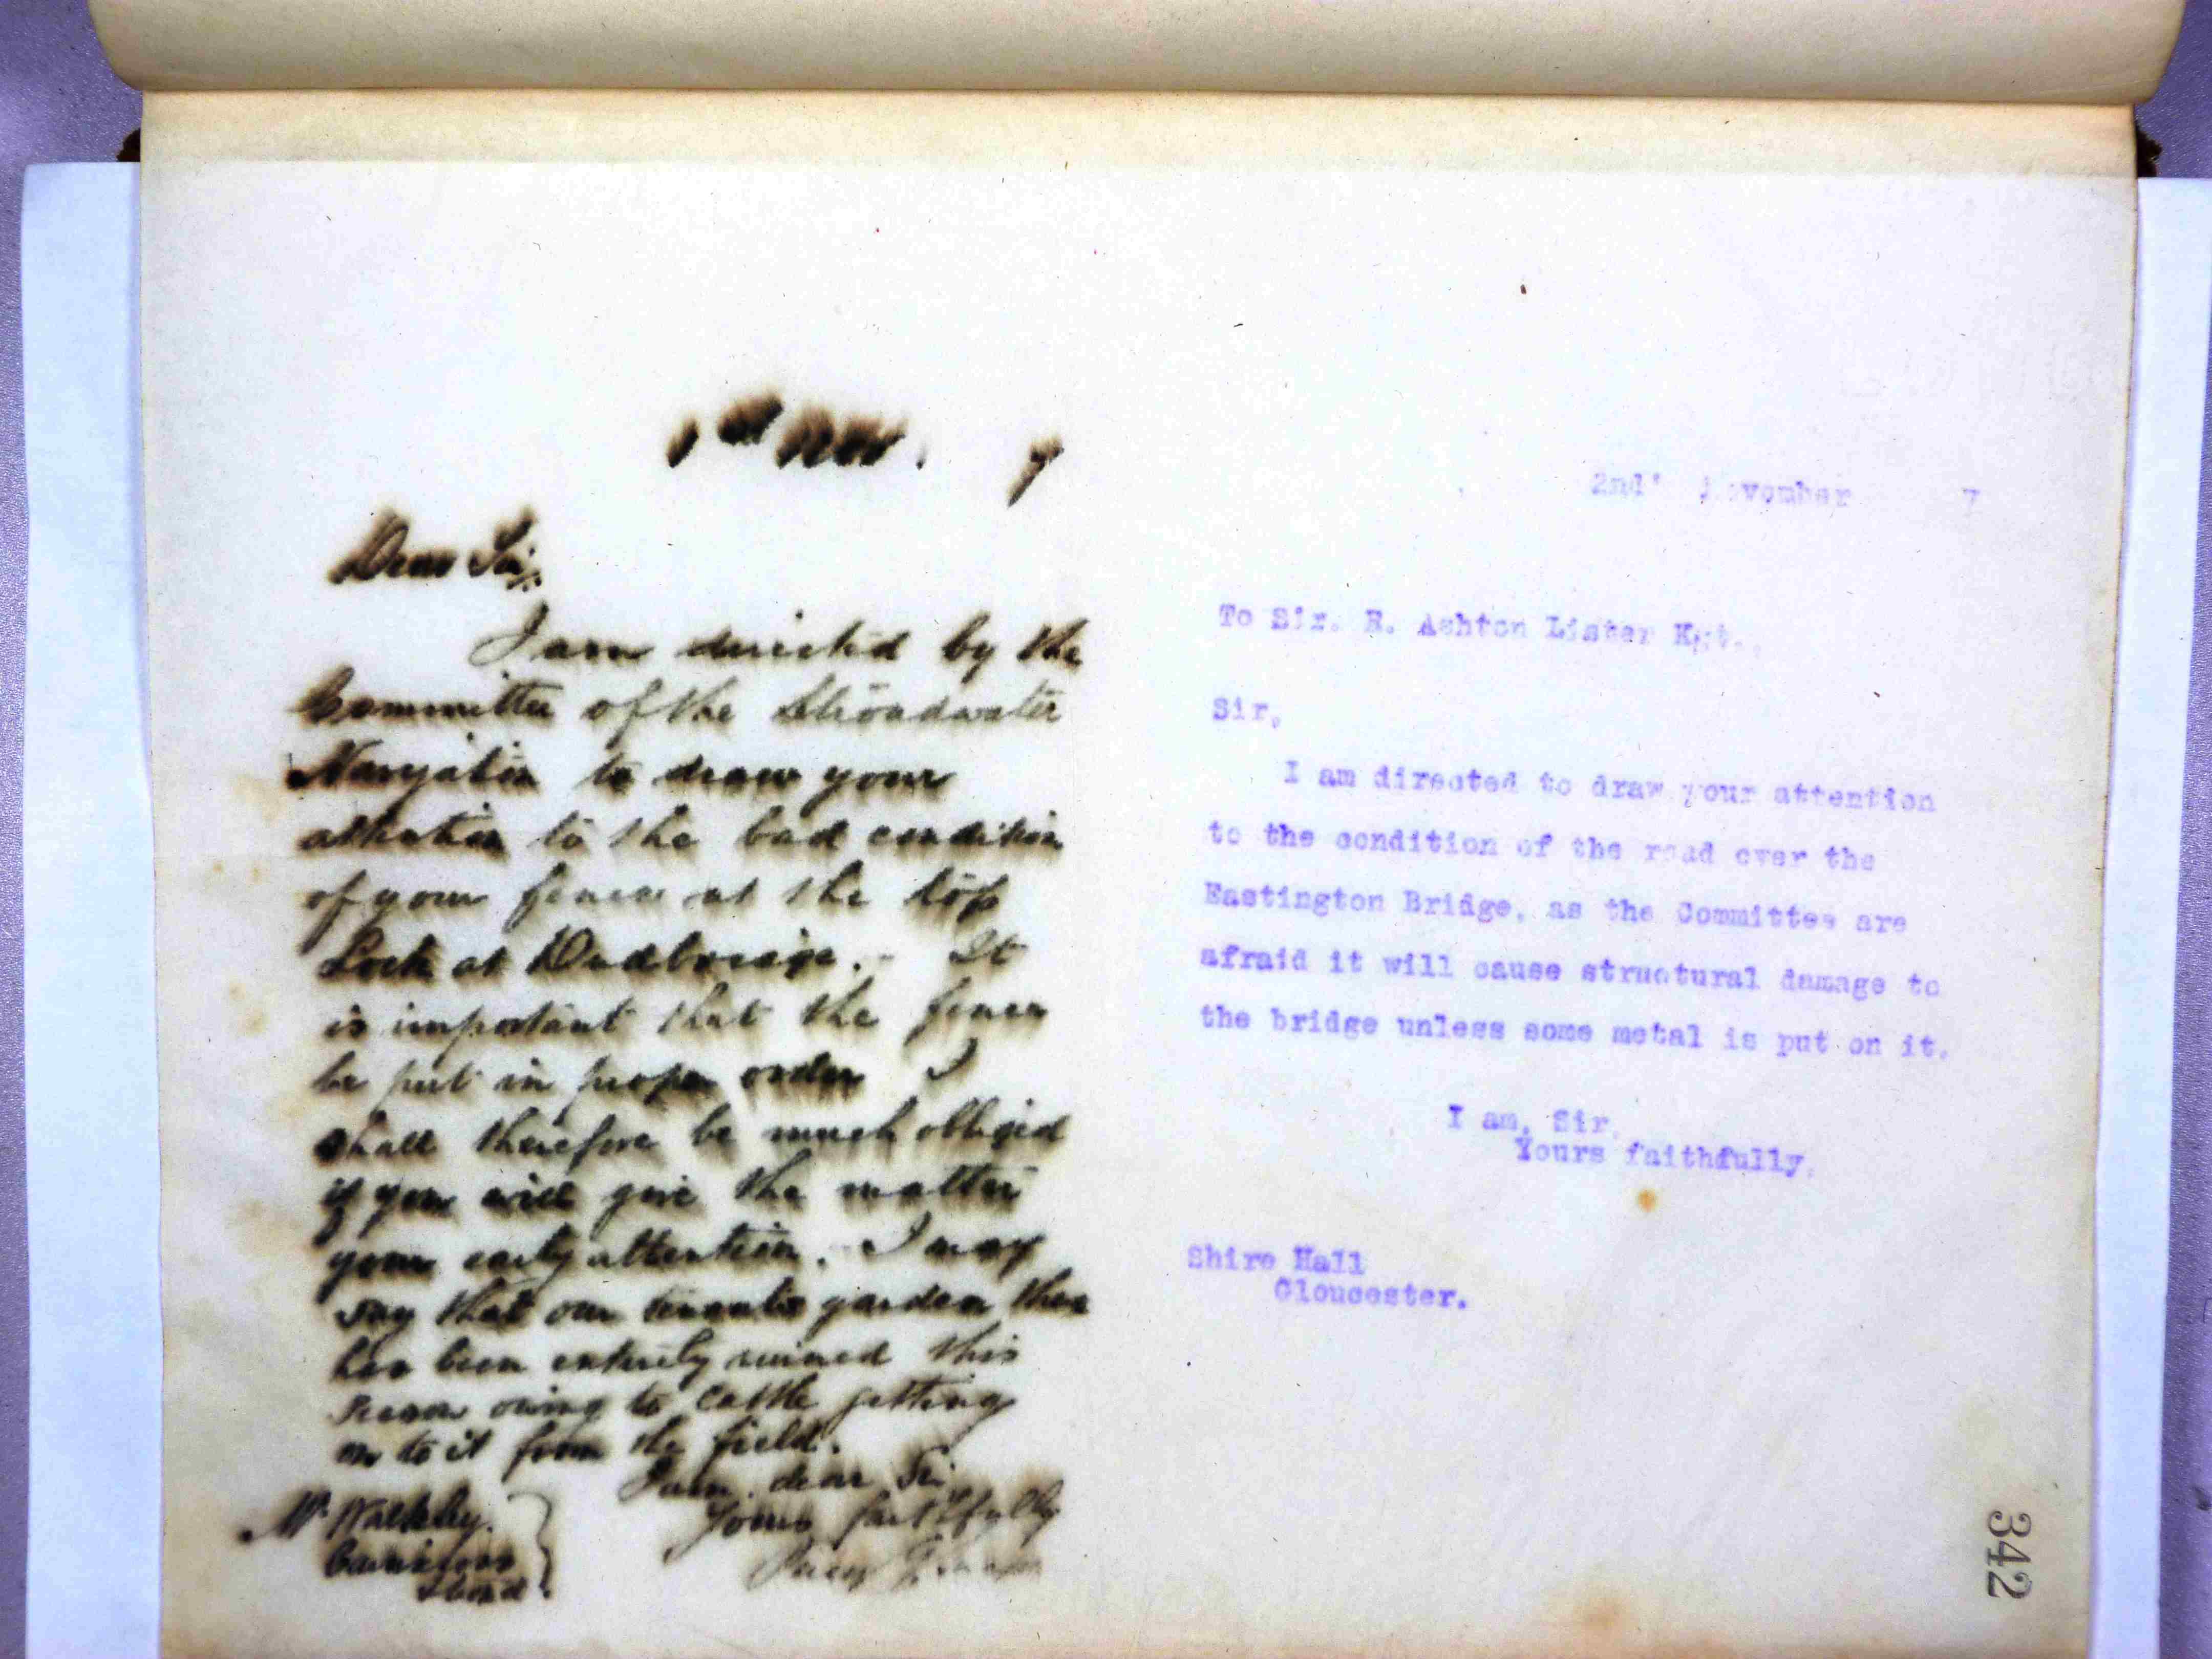 1st Nov. 7
Dear Sir,
I am directed by the
Committee of the Stroudwater
Navigation to draw your
attention to the bad condition
of your fence at the top
Lock at Dudbridge. - It
is important that the fence
be put in proper order I
shall therefore be much obliged
if you will give the matter
your early attention. I may
say that our tenants garden there
has been entirely ruined this
season owing to cattle getting
on to it from the field.
I am dear Sir
Yours faithfully
Mr Walkley.
Stroud
2nd' November 7
To Sir. R. Ashton Lister Kgt.,
Sir,
I am directed to draw your attention
to the condition of the road over the
Eastington Bridge, as the Committee are
afraid it will cause structural damage to
the bridge unless some metal is put on it.
I am, Sir,
Yours faithfully,
Shire Hall
Gloucester.
342